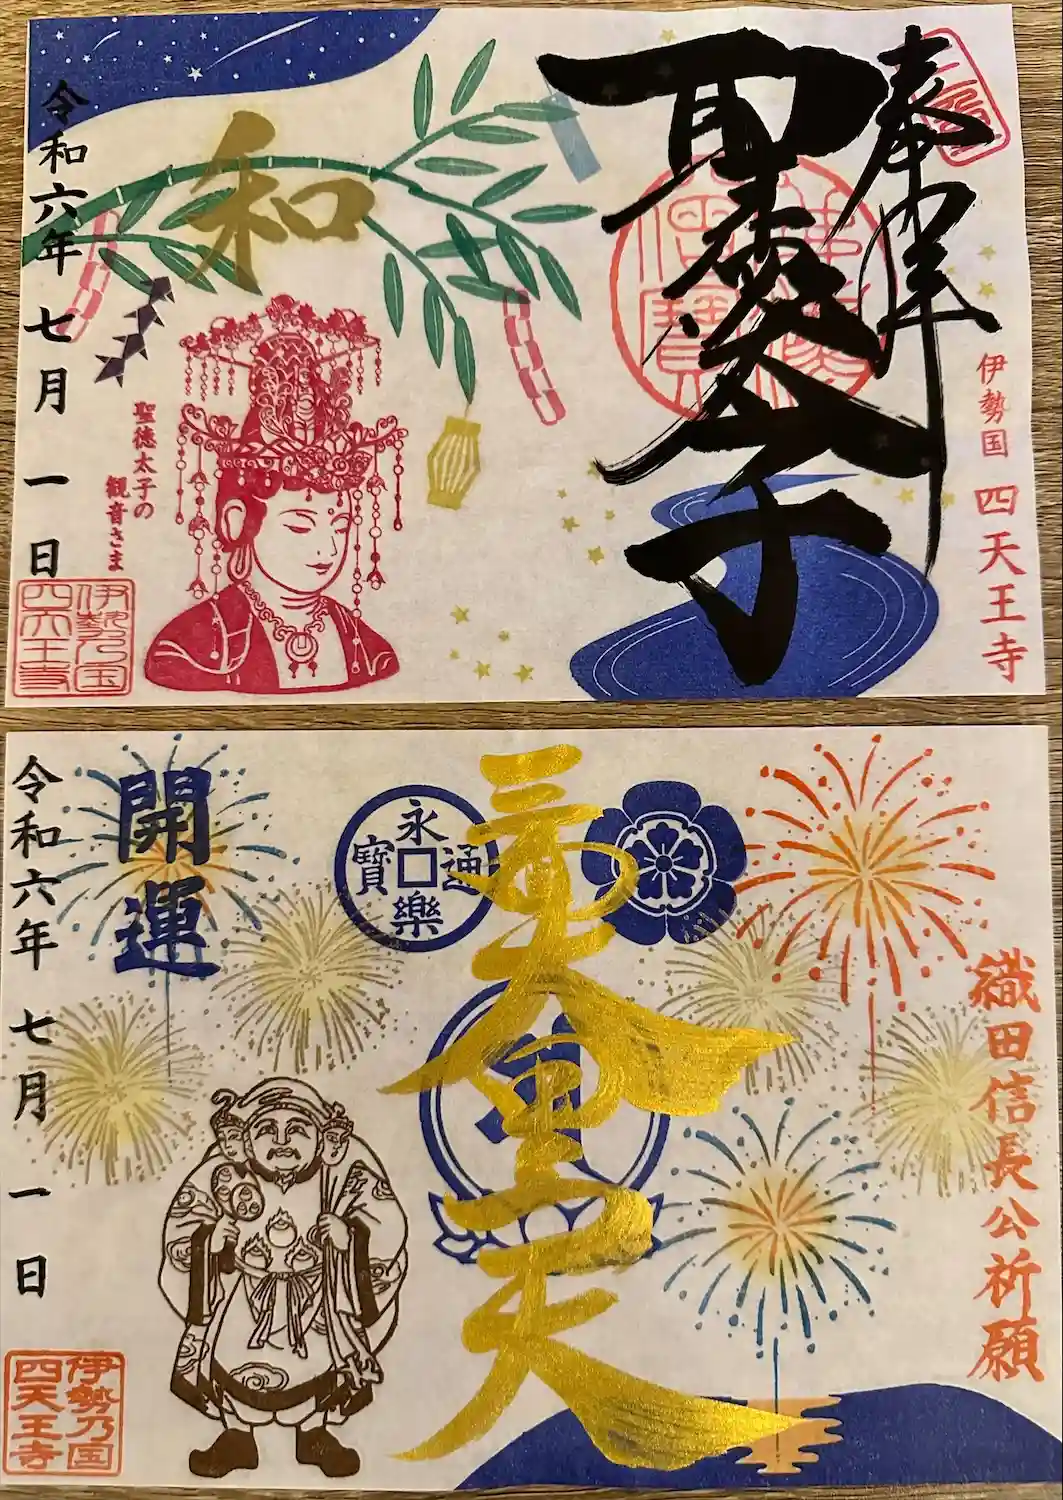 奉拝
伊勢国 四天王寺
聖徳太子
和
聖徳太子の
観音さま
令和六年 七月 一日
伊勢乃国
四天王寺
織田信長公祈願
三面大黒天
永樂通寶
開運
令和六年 七月 一日
伊勢乃国
四天王寺